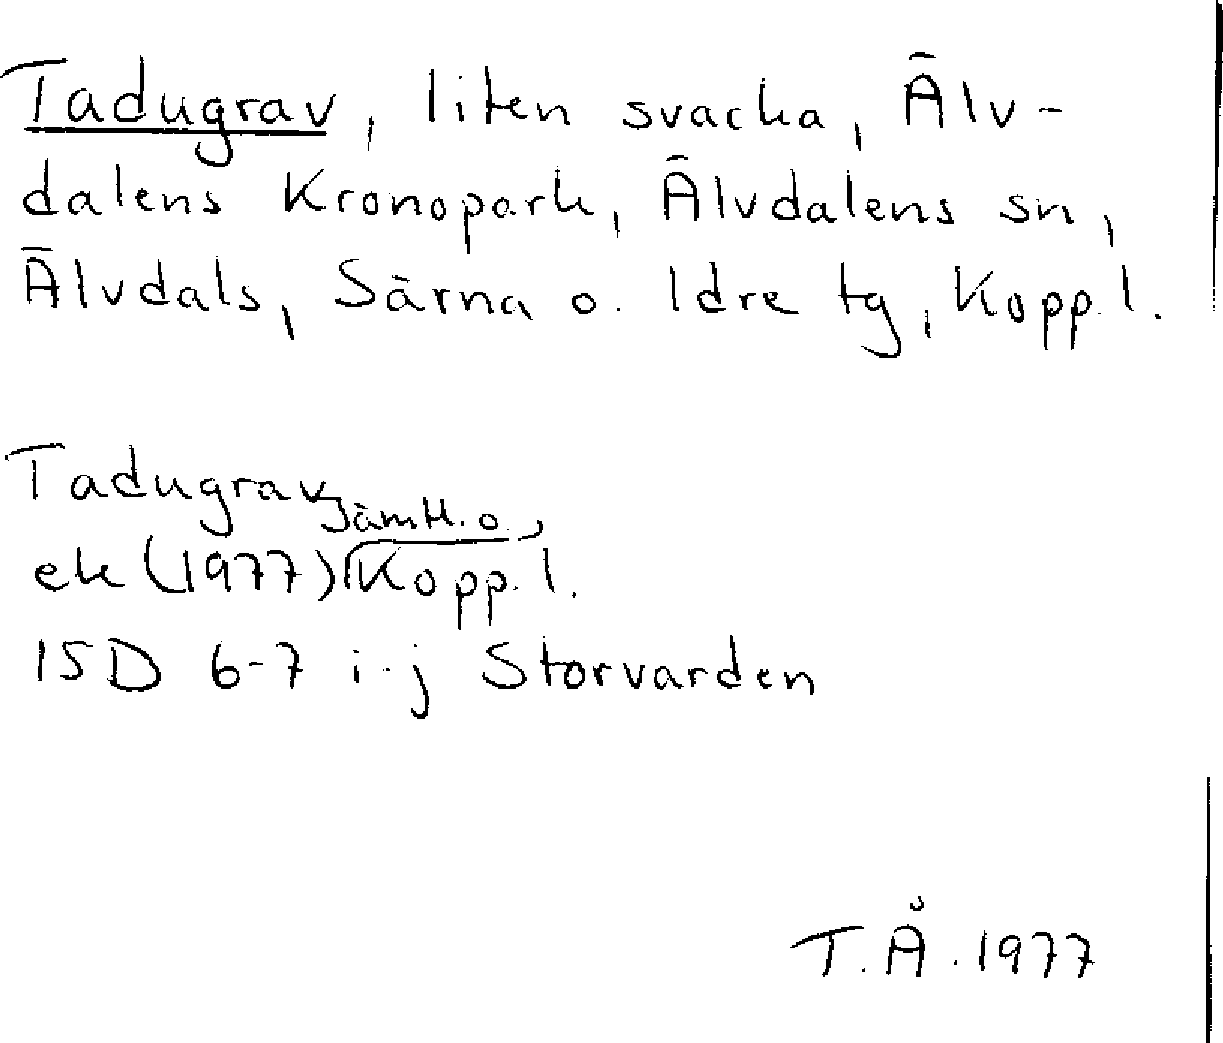 Tadugrav, liten svacka, Älv-
dalens Kronopark, Älvdalens sn,
Älvdals, Särna o. Idre tg, Kopp. l.
Tadugrav
Jämtl. o.
ek (1977) Kopp. l.
15D 6-7 i-j Storvarden
T.Å. 1977